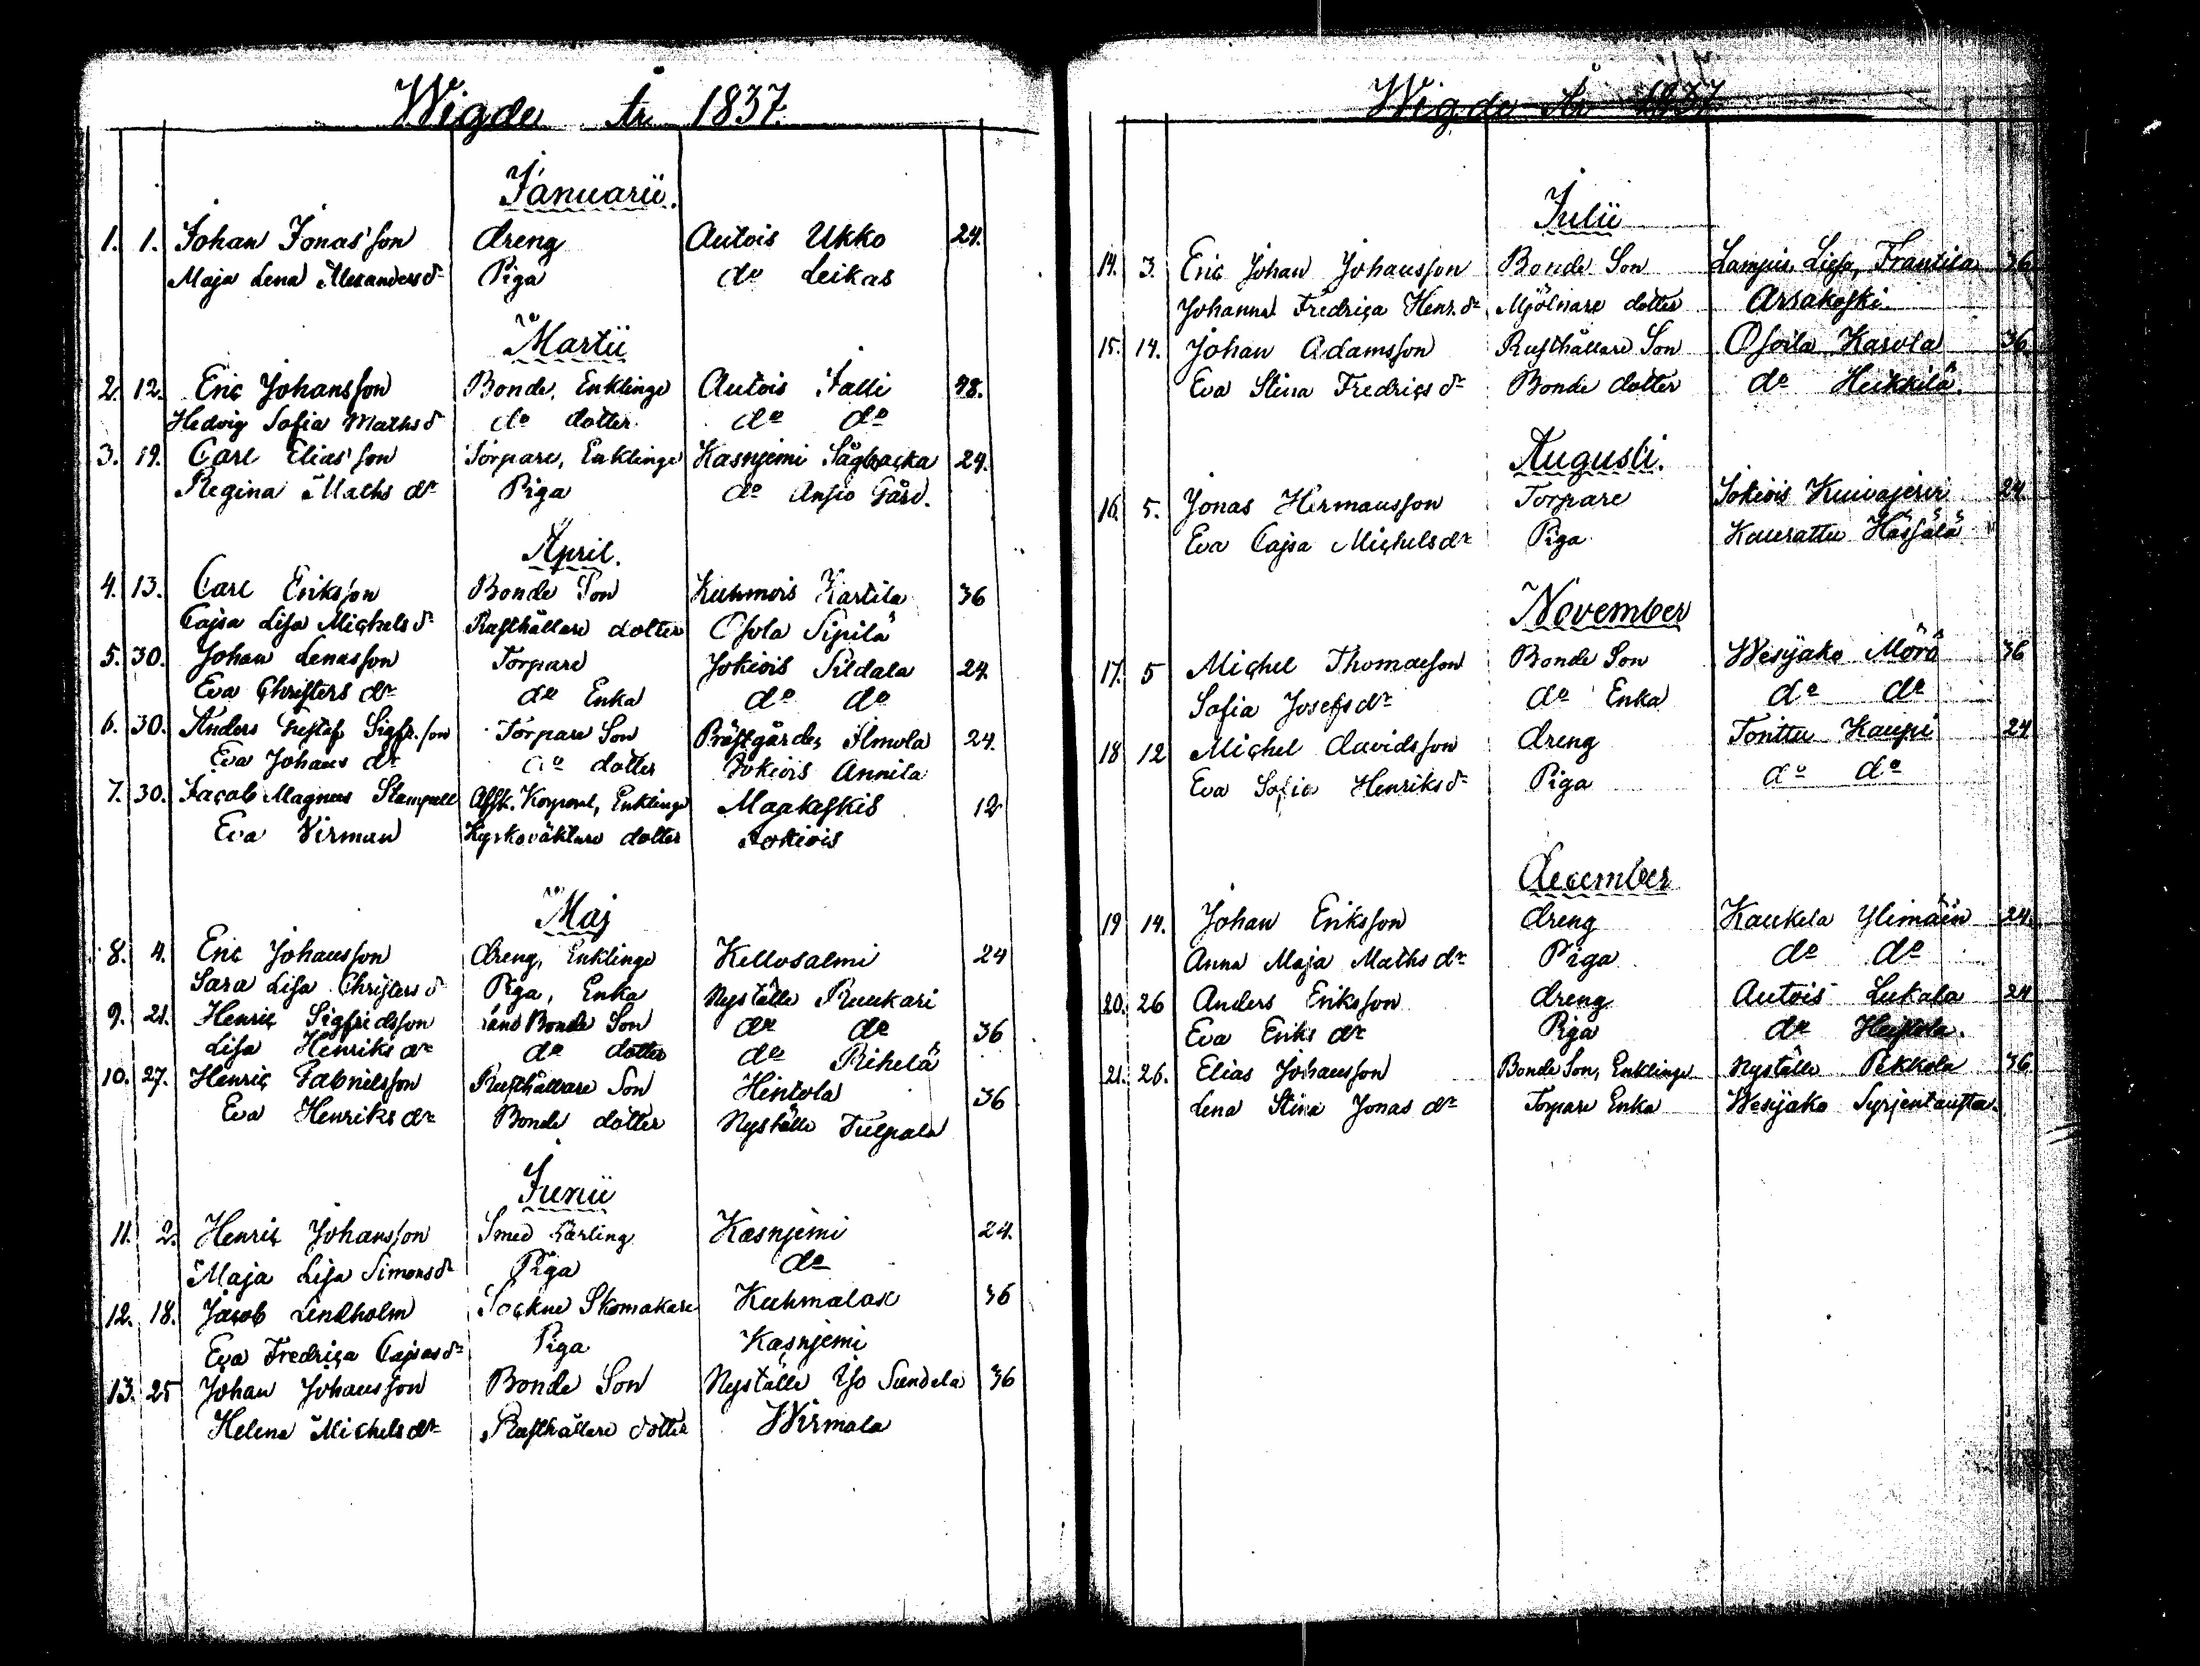 Wigde År 1837.
Januarii.
1. 1. Johan Jonas'son dreng Autois Ukko 24.
Maja Lena Alexandersdr Piga do Leikas
Martii
2. 12. Eric Johansson Bonde, Enklinge Autois Jalli 48.
Hedvig Sofia Mathsdr do dotter do do
3. 19. Carl Elias'son Torpare, Enklinge Kasnjemi Sågbacka 24.
Regina Maths dr Piga do Ansio Gård.
April.
4. 13. Carl Eriksson Bonde Son Kuhmois Kartila 36
Cajsa Lisa Michelsdr Rusthållare dotter Osola Sipilä
5. 30. Johan Lenasson Torpare Jokiois Sildala 24.
Eva Christers dr do Enka do do
6. 30. Anders Gustaf Sigfr.son Torpare Son Prästgårdes Ilmola 24.
Eva Johans dr do dotter Jokiois Annila
7. 30. Jacob Magnus Stampell Afsk. Korporal, Enklinge Maakeskis 12
Eva Virman Kyrkoväktare dotter Jokiois
Maj
8. 4. Eric Johansson dreng, Enklinge Kellosalmi 24
Sara Lisa Christers dr Piga, Enka Nyställe Ruukari
9. 21. Henric Sigfridsson Bonde Son do do 36
Lisa Henriks dr do dotter do Rihelä
10. 27. Henric Gabrielsson Rusthållare Son Hintola 36
Eva Henriks dr Bonde dotter Nyställe Tulpala
Junii
11. 2. Henric Johansson Smed Lärling Kasnjemi 24.
Maja Lisa Simonsdr Piga do
12. 18. Jacob Lindholm Sockne Skomakare Kuhmalax 36
Eva Fredrica Cajsasdr Piga Kasnjemi
13. 25 Johan Johansson Bonde Son Nyställe Iso Sundela 36
Helena Michelsdr Rusthållare dotter Wirmala
Wigde År 1837
Julii
14. 3. Eric Johan Johansson Bonde Son Lampis, Lieso, Frantila 36
Johanna Fredrica Henr.dr Mjölnare dotter Arrakoski
15. 14. Johan Adamsson Rusthållare Son Osoila Karola 36
Eva Stina Fredricsdr Bonde dotter do Heikkilä.
Augusti.
16. 5. Jonas Hermansson Torpare Jokiois Kuivajervi 24
Eva Cajsa Michelsdr Piga Kourattu Hässälä
November
17. 5 Michel Thomasson Bonde Son Wesijako Mörö 36
Sofia Josefsdr do Enka do do
18 12 Michel Davidsson dreng Tonttu Kaupi 24
Eva Sofia Henriksdr Piga do do
December
19 14. Johan Eriksson dreng Kaukela Ylimäin 24.
Anna Maja Maths dr Piga do do
20. 26 Anders Eriksson dreng Autois Lukala 24
Eva Eriks dr Piga do
21. 26. Elias Johansson Bonde Son, Enklinge Nyställe Pekkola 36.
Lena Stina Jonas dr Torpare Enka Wesijako Syrjentausta.